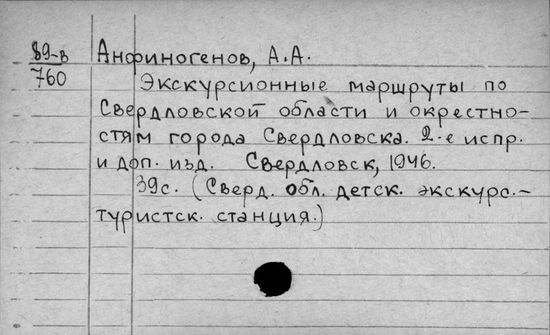 89-в Анфиногенов, А.А.
760 Экскурсионные маршруты по
Свердловской области и окрестно-
стям города Свердловска. 2-е испр.
и доп. изд. Свердловск, 1946.
39с. (Сверд. обл. детск. экскурс.-
туристск. станция.)